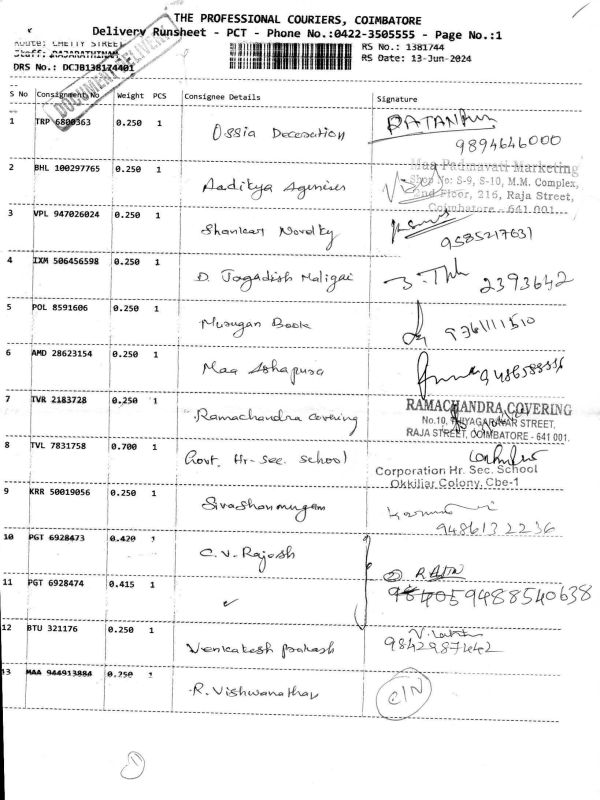 THE PROFESSIONAL COURIERS, COIMBATORE
Delivery Runsheet - PCT - Phone No.:0422-3505555 - Page No.:1
Route: CHETTY STREET
RS No.: 1381744
Staff: RAJARATHINAM
RS Date: 13-Jun-2024
DRS No.: DCJB138174401
DOCUMENT DELIVERY
S No Consignment No Weight PCS Consignee Details Signature
1 TRP 6800363 0.250 1 Ossia Decoration RATANPURI
9894646000
2 BHL 100297765 0.250 1 Aaditya Agencies
Maa Padmavati Marketing
Shop No: S-9, S-10, M.M. Complex,
2nd Floor, 216, Raja Street,
Coimbatore - 641 001.
3 VPL 947026024 0.250 1 Shankar Novelty
9585217631
4 IXM 506456598 0.250 1 D. Jagadish Maligai
2393642
5 POL 8591606 0.250 1 Murugan Book
9361111510
6 AMD 28623154 0.250 1 Maa Ashapura
7 TVR 2183728 0.250 1 Ramachandra covering
RAMACHANDRA COVERING
No.10, THIYAGARAYAR STREET,
RAJA STREET, COIMBATORE - 641 001.
8 TVL 7831758 0.700 1 Govt. Hr. Sec. School
Corporation Hr. Sec. School
Okkiliar Colony, Cbe-1
9 KRR 50019056 0.250 1 Sivashanmugam
9486132236
10 PGT 6928473 0.420 1 C.V. Rajesh
11 PGT 6928474 0.415 1 ✓
9488540638
12 BTU 321176 0.250 1 Venkatesh prakash
9842987442
13 MAA 944913884 0.250 1 R. Vishwanathan